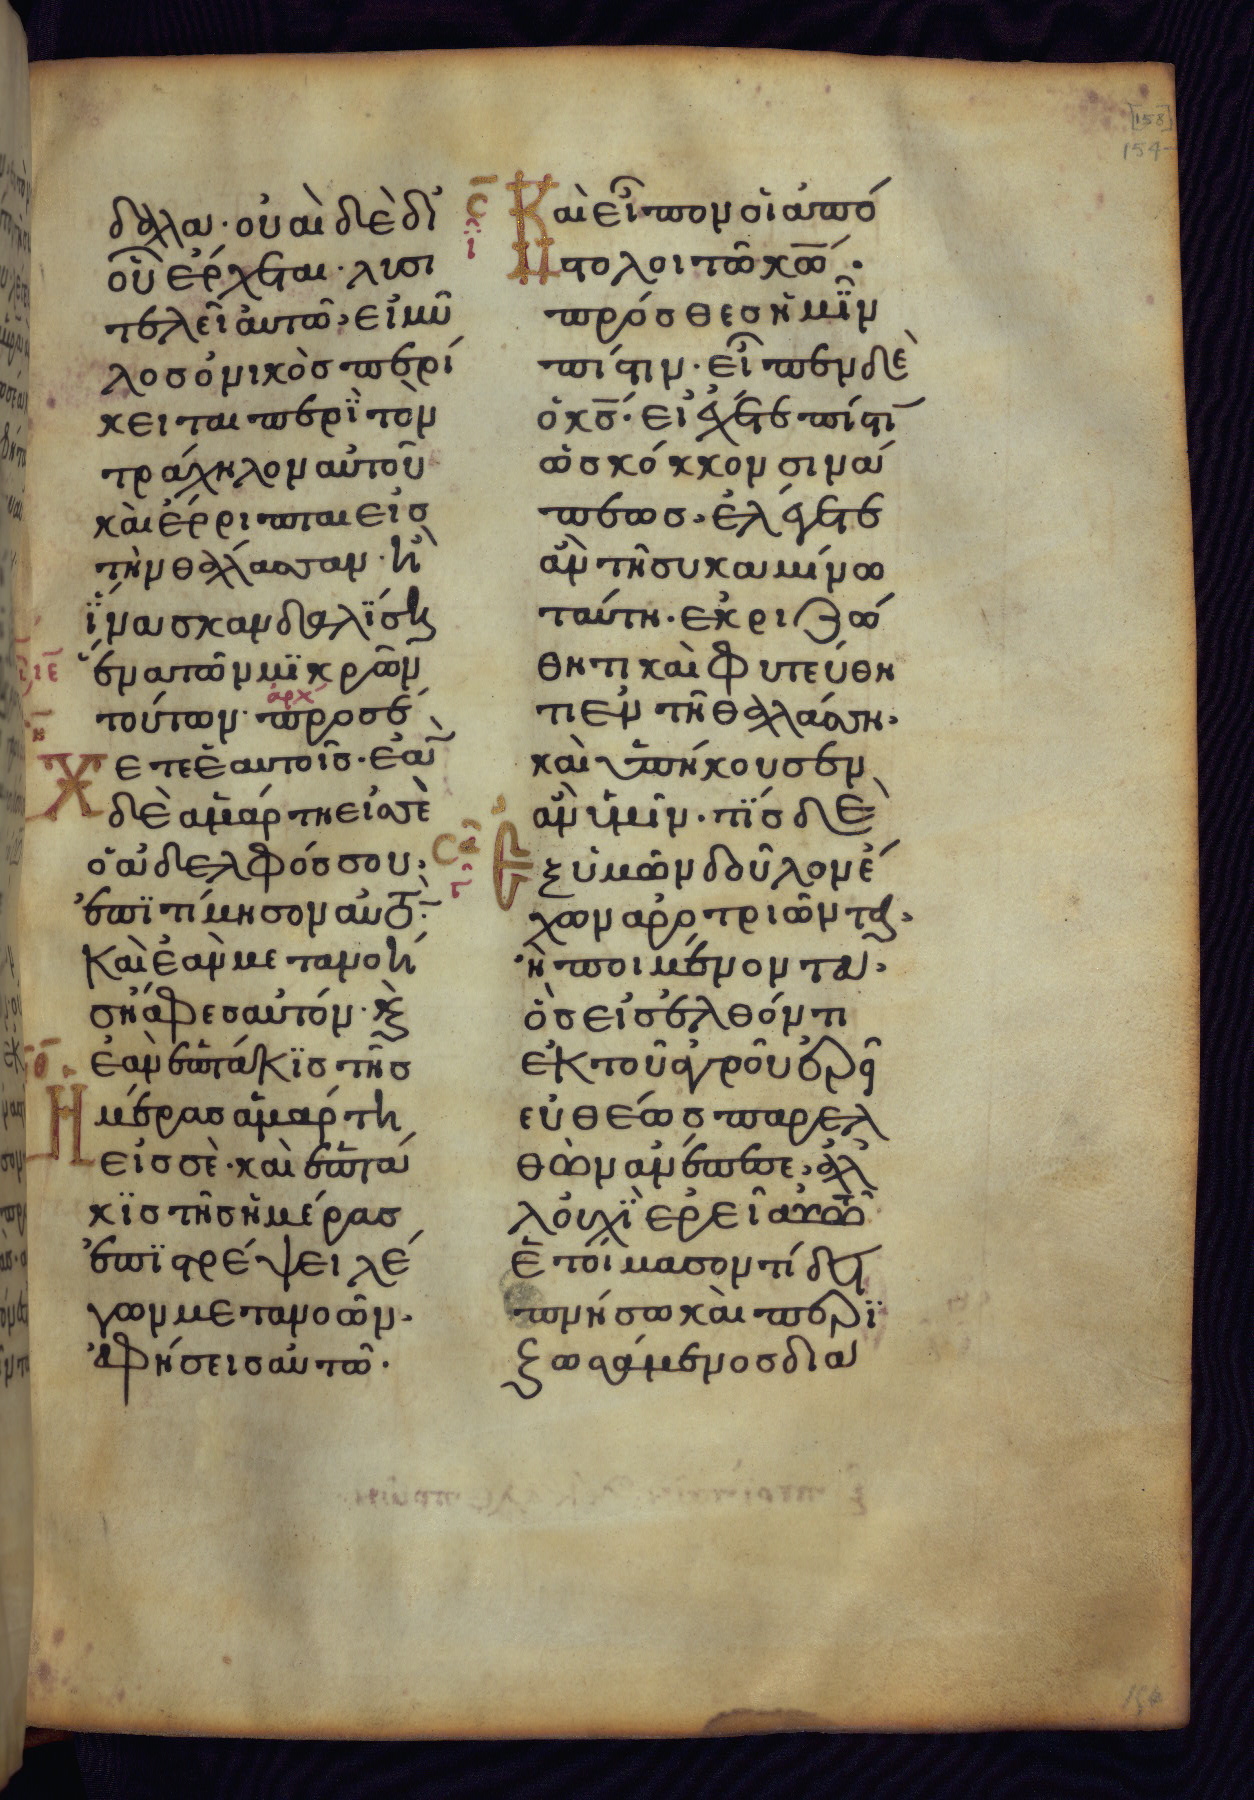 δαλα· οὐαὶ δὲ δι
οὗ ἔρχεται· λυσι
τελεῖ αὐτῶ, εἰ μῦ
λος ὀνικὸς περί
κειται περὶ τὸν
τράχηλον αὐτοῦ
καὶ ἔρριπται εἰς
τὴν θάλασσαν· ἢ
ἵνα σκανδαλίση
ἕνα τῶν μικρῶν
τούτων· προσέ
ἀρχ
χετε ἑαυτοῖς· ἐὰν
δὲ ἁμάρτη εἰς σὲ
ὁ ἀδελφός σου,
ἐπιτίμησον αὐτῶ·
καὶ ἐὰν μετανοή
ση ἄφες αὐτόν· κ(αὶ)
ἐὰν ἑπτάκις τῆς
ἡμέρας ἁμάρτη
εἰς σὲ· καὶ ἑπτά
κις τῆς ἡμέρας
ἐπιστρέψει λέ
γων μετανοῶν·
ἀφήσεις αὐτῶ·
Καὶ εἶπον οἱ ἀπό
στολοι τῶ κ̅ω̅·
πρόσθες ἡμῖν
πίστιν· εἶπεν δὲ
ὁ κ̅ς̅· εἰ ἔχετε πίστιν
ὡς κόκκον σινά
πεως, ἐλέγετε
ἂν τῆ συκαμίνω
ταύτη· ἐκριζώ
θητι καὶ φυτεύθη
τι ἐν τῆ θαλάσση·
καὶ ὑπήκουσεν
ἂν ὑμῖν· τίς δὲ
ἐξ ὑμῶν δοῦλον ἔ
χων ἀροτριῶντα,
ἢ ποιμένοντα,
ὃς εἰσελθόντι
ἐκ τοῦ ἀγροῦ ἐρεῖ
εὐθέως παρελ
θὼν ἀνάπεσε, ἀλ
λ' οὐχὶ ἐρεῖ αὐτῶ
ἑτοίμασον τί δει
πνήσω καὶ περι
ζωσάμενος δια